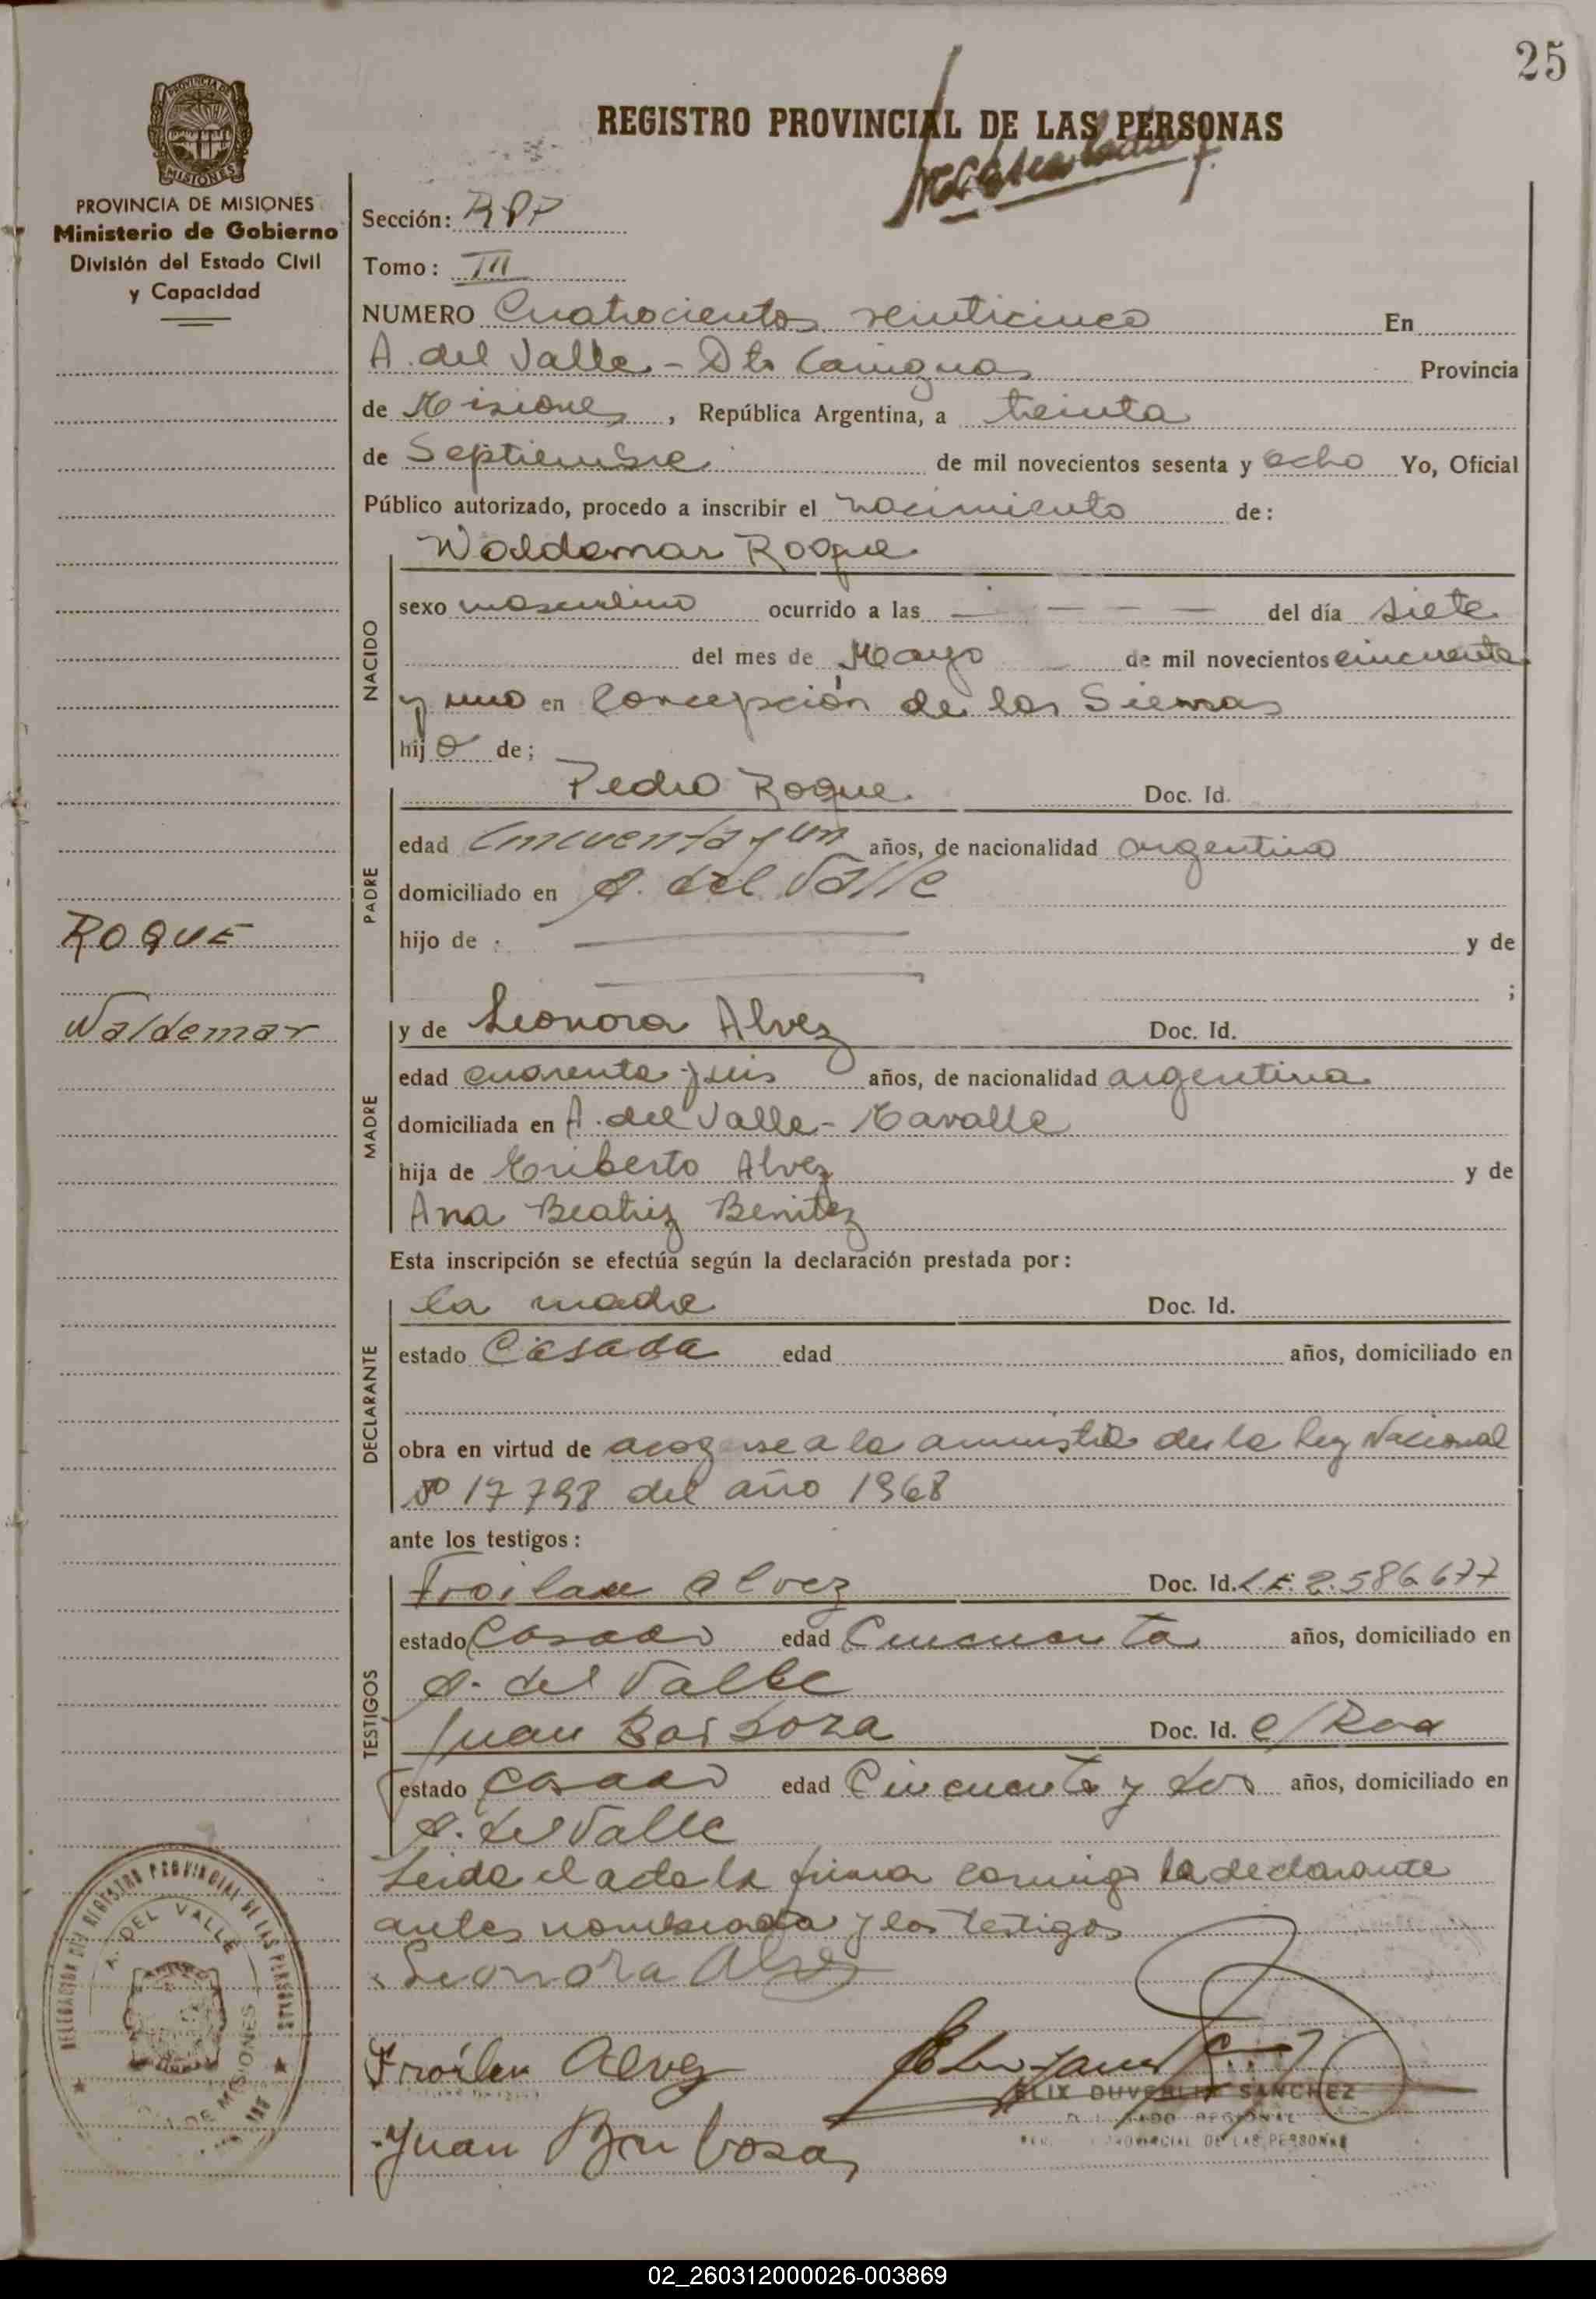 25
REGISTRO PROVINCIAL DE LAS PERSONAS
PROVINCIA DE MISIONES
Ministerio de Gobierno
División del Estado Civil
y Capacidad
Sección: RPP
Tomo: III
NUMERO Cuatrocientos veinticinco En
A. del Valle - Dto Cainguas Provincia
de Misiones, República Argentina, a treinta
de Septiembre de mil novecientos sesenta y ocho Yo, Oficial
Público autorizado, procedo a inscribir el nacimiento de:
Waldemar Roque
NACIDO
sexo masculino ocurrido a las — — — — del día siete
del mes de Mayo de mil novecientos cincuenta
y uno en Concepción de las Sierras
hijo de;
PADRE
Pedro Roque Doc. Id.
edad Cincuenta y un años, de nacionalidad argentino
domiciliado en A. del Valle
hijo de : y de
;
ROQUE
Waldemar
MADRE
y de Leonora Alvez Doc. Id.
edad cuarenta y seis años, de nacionalidad argentina
domiciliada en A. del Valle -
hija de Eriberto Alvez y de
Ana Beatriz Benitez
Esta inscripción se efectúa según la declaración prestada por:
DECLARANTE
la madre Doc. Id.
estado Casada edad años, domiciliado en
obra en virtud de acogerse a la amnistia de la ley Nacional
Nº 17798 del año 1968
ante los testigos:
TESTIGOS
Froilan Alvez Doc. Id. L.E. 2.586677
estado Casado edad Cincuenta años, domiciliado en
A. del Valle
Juan Barboza Doc. Id. C/Roa
estado Casado edad Cincuenta y dos años, domiciliado en
A. del Valle
Leida el acta la firma conmigo la declarante
antes nombrada y los testigos
Leonora Alvez
Froilan Alvez
Juan Barboza
SANCHEZ
REGIONAL
PROVINCIAL DE LAS PERSONAS
DELEGACION DEL REGISTRO PROVINCIAL DE LAS PERSONAS
A. DEL VALLE
MISIONES
02_260312000026-003869